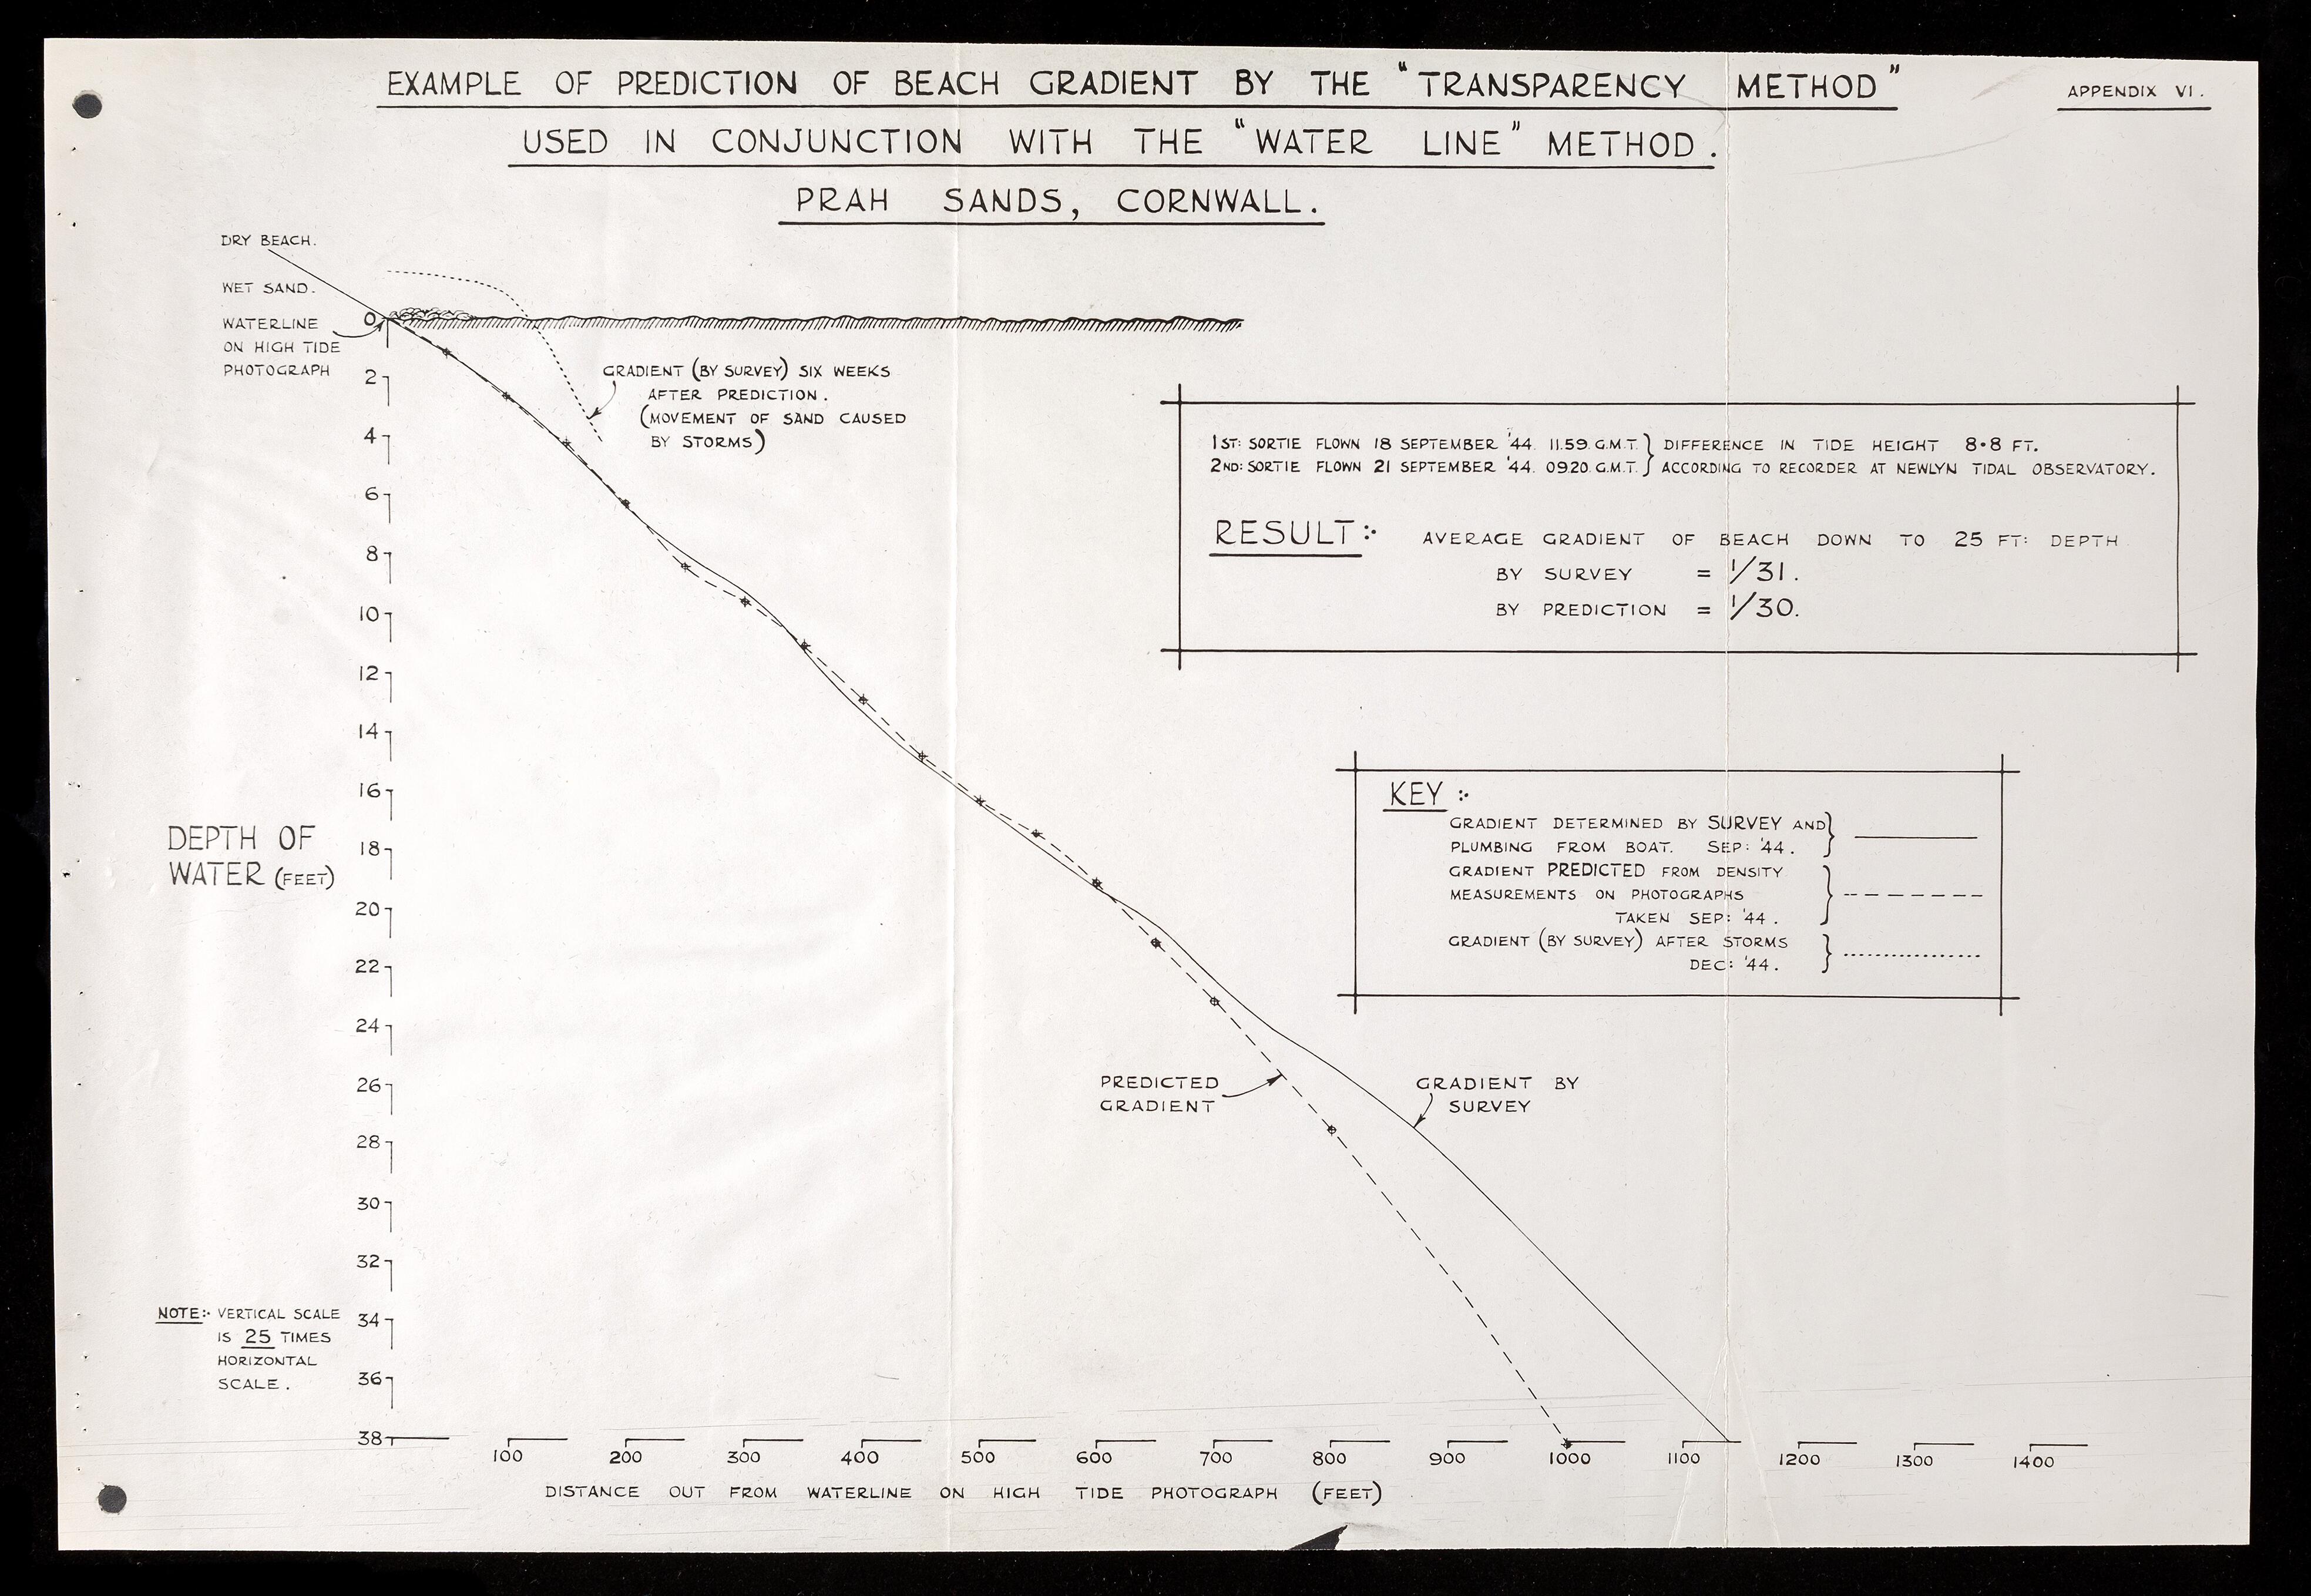 EXAMPLE OF PREDICTION OF BEACH GRADIENT BY THE "TRANSPARENCY METHOD"
APPENDIX VI.
USED IN CONJUNCTION WITH THE "WATER LINE" METHOD.
PRAH SANDS, CORNWALL.
DRY BEACH.
WET SAND.
WATERLINE
ON HIGH TIDE
PHOTOGRAPH
GRADIENT (BY SURVEY) SIX WEEKS
AFTER PREDICTION.
(MOVEMENT OF SAND CAUSED
BY STORMS)
1ST: SORTIE FLOWN 18 SEPTEMBER '44. 11.59. G.M.T. } DIFFERENCE IN TIDE HEIGHT 8·8 FT.
2ND: SORTIE FLOWN 21 SEPTEMBER '44. 09.20. G.M.T. } ACCORDING TO RECORDER AT NEWLYN TIDAL OBSERVATORY.
RESULT:- AVERAGE GRADIENT OF BEACH DOWN TO 25 FT: DEPTH
BY SURVEY = 1/31.
BY PREDICTION = 1/30.
KEY :-
GRADIENT DETERMINED BY SURVEY AND
PLUMBING FROM BOAT. SEP: '44.
GRADIENT PREDICTED FROM DENSITY
MEASUREMENTS ON PHOTOGRAPHS
TAKEN SEP: '44.
GRADIENT (BY SURVEY) AFTER STORMS
DEC: '44.
PREDICTED
GRADIENT
GRADIENT BY
SURVEY
DEPTH OF
WATER (FEET)
0
2
4
6
8
10
12
14
16
18
20
22
24
26
28
30
32
34
36
38
NOTE:- VERTICAL SCALE
IS 25 TIMES
HORIZONTAL
SCALE.
100 200 300 400 500 600 700 800 900 1000 1100 1200 1300 1400
DISTANCE OUT FROM WATERLINE ON HIGH TIDE PHOTOGRAPH (FEET)